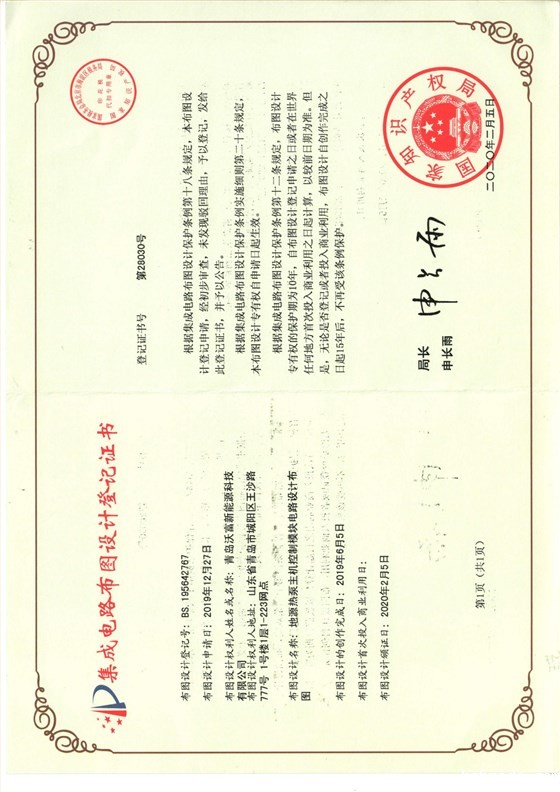 集成电路布图设计登记证书
布图设计登记号：BS. 195642767
布图设计申请日：2019年12月27日
布图设计权利人姓名或名称：青岛沃富新能源科技
有限公司
布图设计权利人地址：山东省青岛市城阳区王沙路
777号 1号楼1层1-223网点
布图设计名称：地源热泵主机控制模块电路设计布
图
布图设计的创作完成日：2019年6月5日
布图设计首次投入商业利用日：
布图设计颁证日：2020年2月5日
登记证书号 第28030号
根据集成电路布图设计保护条例第十八条规定，本布图设
计登记申请，经初步审查，未发现驳回理由，予以登记，发给
此登记证书，并予以公告。
根据集成电路布图设计保护条例实施细则第二十条规定，
本布图设计专有权自申请日起生效。
根据集成电路布图设计保护条例第十二条规定，布图设计
专有权的保护期为10年，自布图设计登记申请之日或者在世界
任何地方首次投入商业利用之日起计算，以较前日期为准。但
是，无论是否登记或者投入商业利用，布图设计自创作完成之
日起15年后，不再受该条例保护。
局长
申长雨
申长雨
国家知识产权局
二〇二〇年二月五日
第1页（共1页）